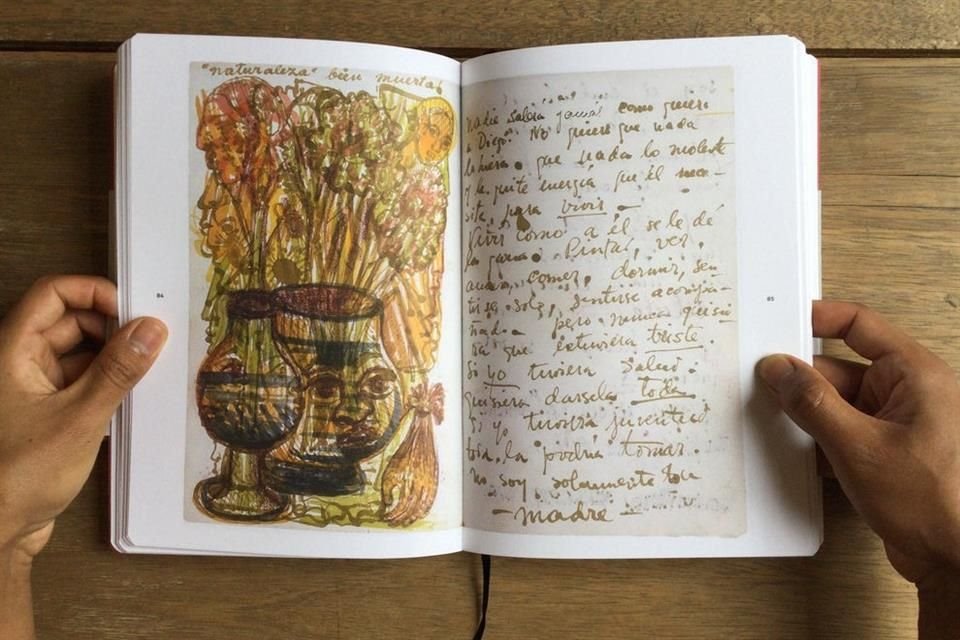 "naturaleza" bien muerta!
84
Nadie sabrá jamás como quiero
a Diego. No quiero que nada
lo hiera. que nada lo moleste
y le quite energía que él nece-
sita para vivir –
Vivir como a él se le dé
la gana. Pintar, ver,
amar, comer, dormir, sen
tirse solo, sentirse acompa-
ñado – pero nunca quisie
ra que estuviera triste.
Si yo tuviera salud
quisiera darsela toda
si yo tuviera juventud
toda la podría tomar.
no soy solamente tu
– madre –
85